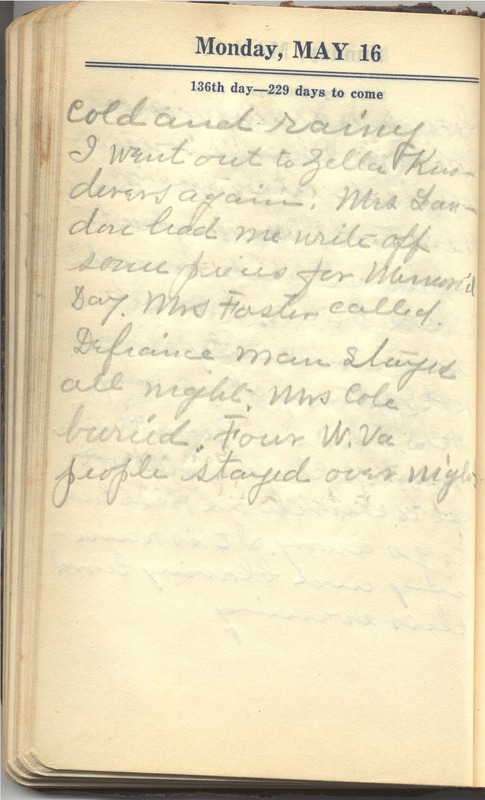 Monday, MAY 16
136th day—229 days to come
Cold and rainy
I went out to Zella Kno-
derers again. Mrs Lan-
don had me write off
some pieces for Memori'l
Day. Mrs Foster called.
Defiance man stayed
all night. Mrs Cole
buried. Four W. Va
people stayed over night